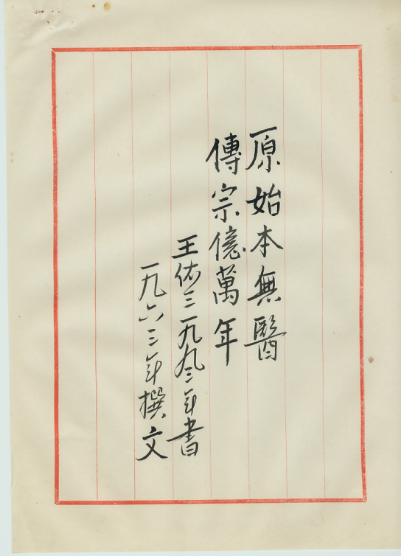 原始本無醫
傳宗億萬年
王佑三一九九二年書
一九六三年撰文